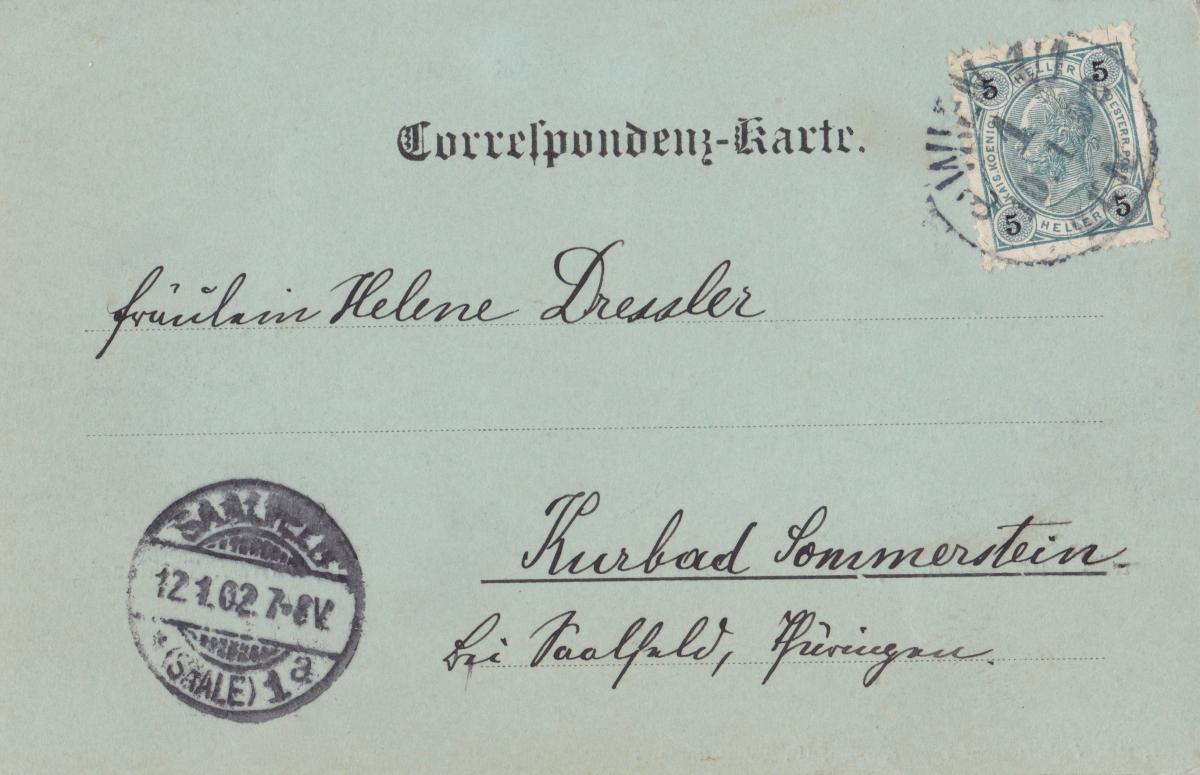 Correspondenz-Karte.
5 HELLER 5
KAIS. KOENIGL. OESTERR. POST
5 HELLER 5
WIEN
1
Fräulein Helene Dressler
Kurbad Sommerstein.
bei Saalfeld, Thüringen.
SAALFELD
12.1.02.7-8V.
* (SAALE) 1a